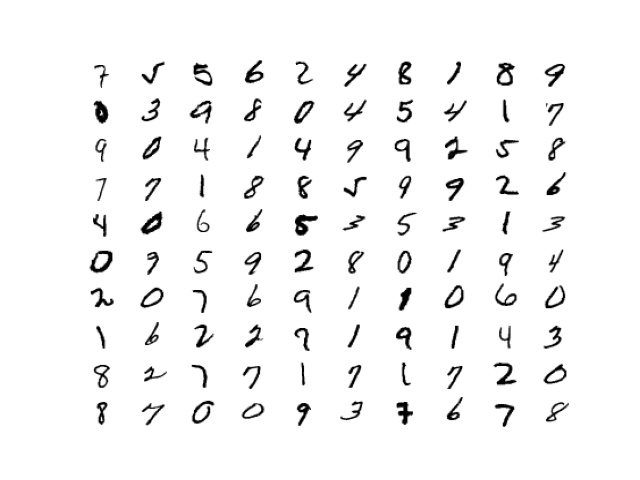 7 5 5 6 2 4 8 1 8 9
0 3 9 8 0 4 5 4 1 7
9 0 4 1 4 9 9 2 5 8
7 7 1 8 8 5 9 9 2 6
4 0 6 6 5 3 5 3 1 3
0 9 5 9 2 8 0 1 9 4
2 0 7 6 9 1 1 0 6 0
1 6 2 2 7 1 9 1 4 3
8 2 7 7 1 7 1 7 2 0
8 7 0 0 9 3 7 6 7 8